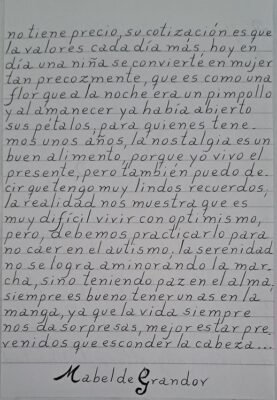 no tiene precio, su cotización es que
la valores cada día más, hoy en
día una niña se convierte en mujer
tan precozmente, que es como una
flor que a la noche era un pimpollo
y al amanecer ya había abierto
sus pétalos, para quienes tene-
mos unos años, la nostalgia es un
buen alimento, porque yo vivo el
presente, pero también puedo de-
cir que tengo muy lindos recuerdos,
la realidad nos muestra que es
muy difícil vivir con optimismo,
pero, debemos practicarlo para
no caer en el autismo, la serenidad
no se logra aminorando la mar-
cha, sino teniendo paz en el alma,
siempre es bueno tener un as en la
manga, ya que la vida siempre
nos da sorpresas, mejor estar pre-
venidos que esconder la cabeza...
Mabel de Grandov